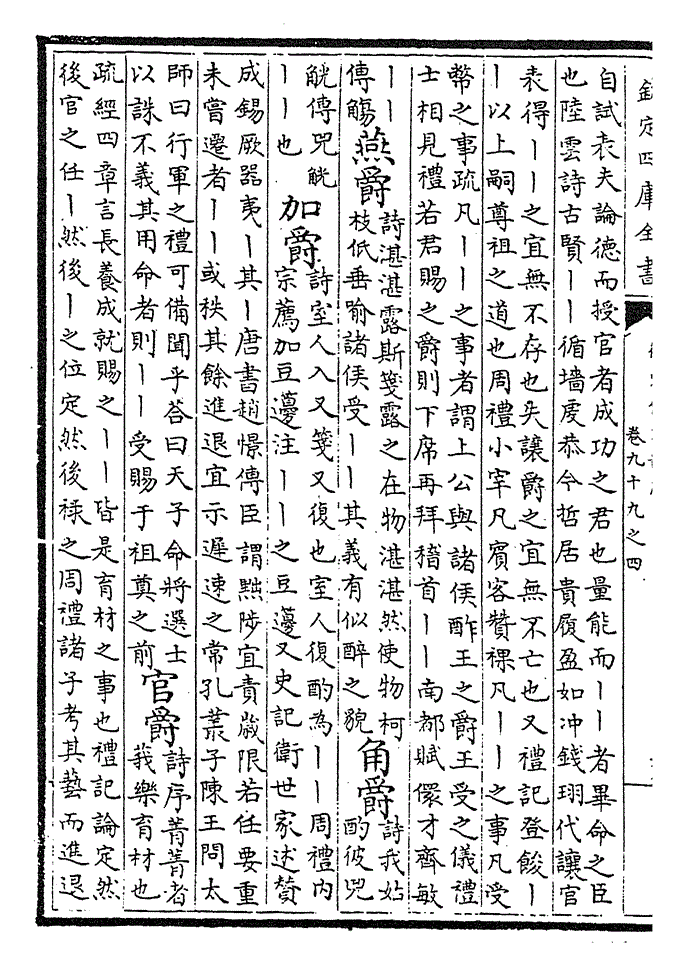 欽定四庫全書
卷九十九之四
自試表夫論德而授官者成功之君也量能而丨丨者畢命之臣
也陸雲詩古賢丨丨循墻虔恭今哲居貴履盈如冲錢珝代讓官
表得丨丨之宜無不存也失讓爵之宜無不亡也又禮記登餕丨
丨以上嗣尊祖之道也周禮小宰凡賓客贊祼凡丨丨之事凡受
幣之事疏凡丨丨之事者謂上公與諸侯酢王之爵王受之儀禮
士相見禮若君賜之爵則下席再拜稽首丨丨南都賦儇才齊敏
丨丨
傳觴
燕爵
詩湛湛露斯箋露之在物湛湛然使物柯
枝低垂喻諸侯受丨丨其義有似醉之貌
角爵
詩我姑
酌彼兕
觥傳兕觥
丨丨也
加爵
詩室人入又箋又復也室人復酌為丨丨周禮内
宗薦加豆籩注丨丨之豆籩又史記衛世家述贊
成錫厥器夷丨其丨唐書趙憬傳臣謂黜陟宜責歲限若任要重
未嘗遷者丨丨或秩其餘進退宜示遲速之常孔叢子陳王問太
師曰行軍之禮可備聞乎荅曰天子命將選士
以誅不義其用命者則丨丨受賜于祖奠之前
官爵
詩序菁菁者
莪樂育材也
疏經四章言長養成就賜之丨丨皆是育材之事也禮記論定然
後官之任丨然後丨之位定然後祿之周禮諸子考其藝而進退